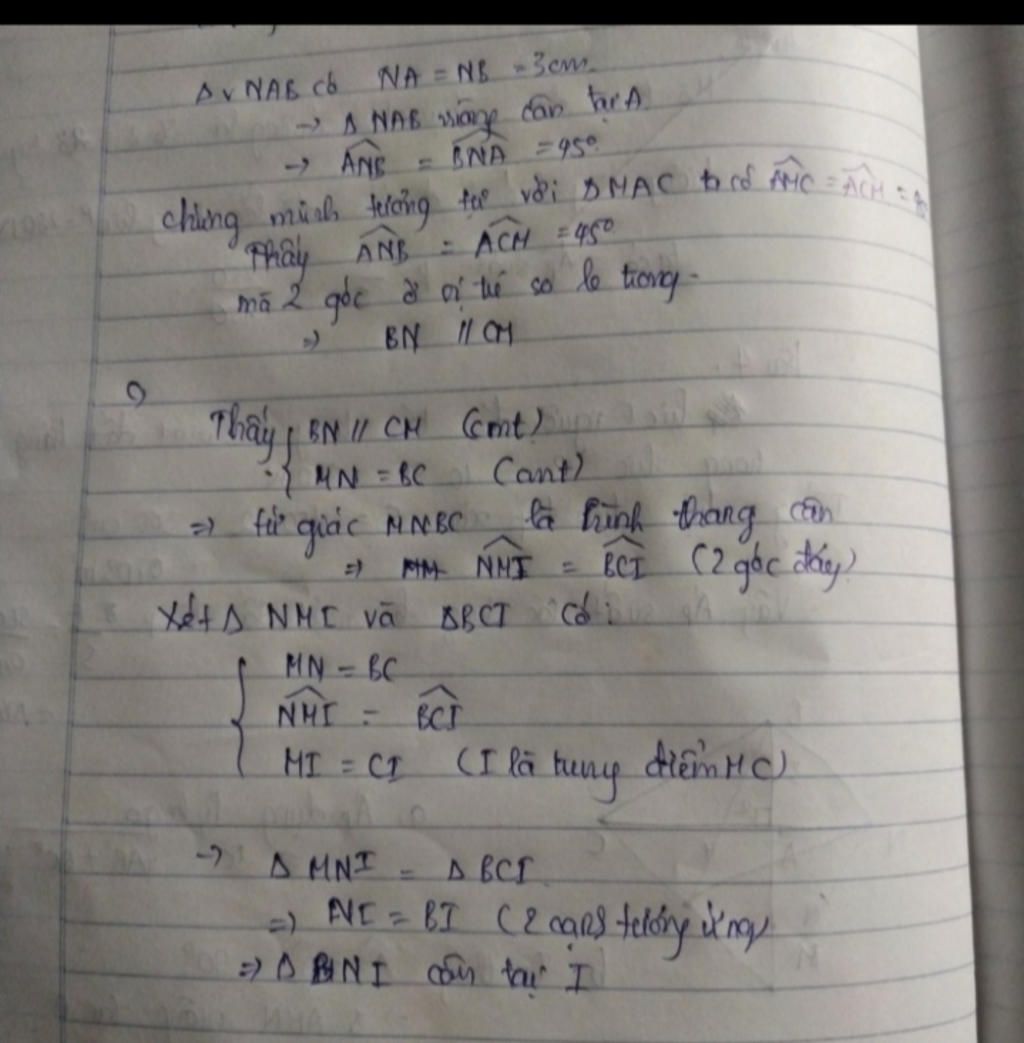 Δv NAB có NA = NB = 3cm.
→ Δ NAB vuông cân tại A
→ ANB = BNA = 45°
chứng minh tương tự với ΔMAC ta có AMC = ACM =
Thấy ANB = ACM = 45°
mà 2 góc ở vị trí so le trong.
=> BN // CM
Thấy { BN // CM (cmt)
MN = BC (cmt)
=> tứ giác MNBC là hình thang cân
=> NMI = BCI (2 góc đáy)
Xét Δ NMI và ΔBCI có:
MN = BC
NMI = BCI
MI = CI (I là trung điểm MC)
→ Δ MNI = Δ BCI
=> NI = BI (2 cạnh tương ứng)
=> Δ BNI cân tại I